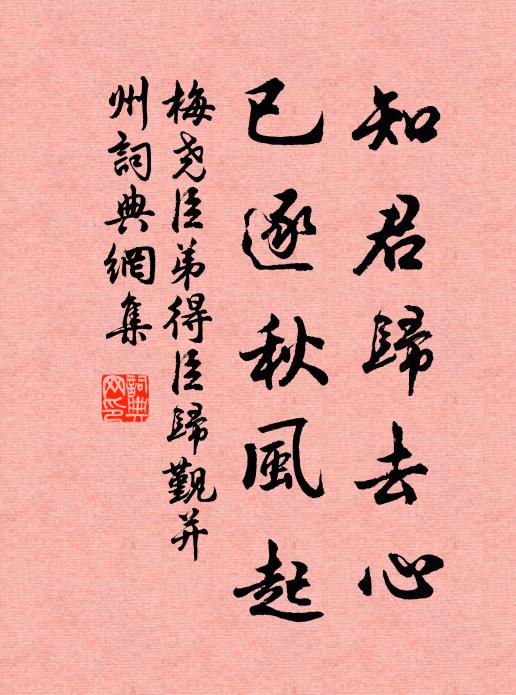 知君歸去心
已逐秋風起
梅堯臣弟得臣歸觐并
州詞典網集
詞典
网印